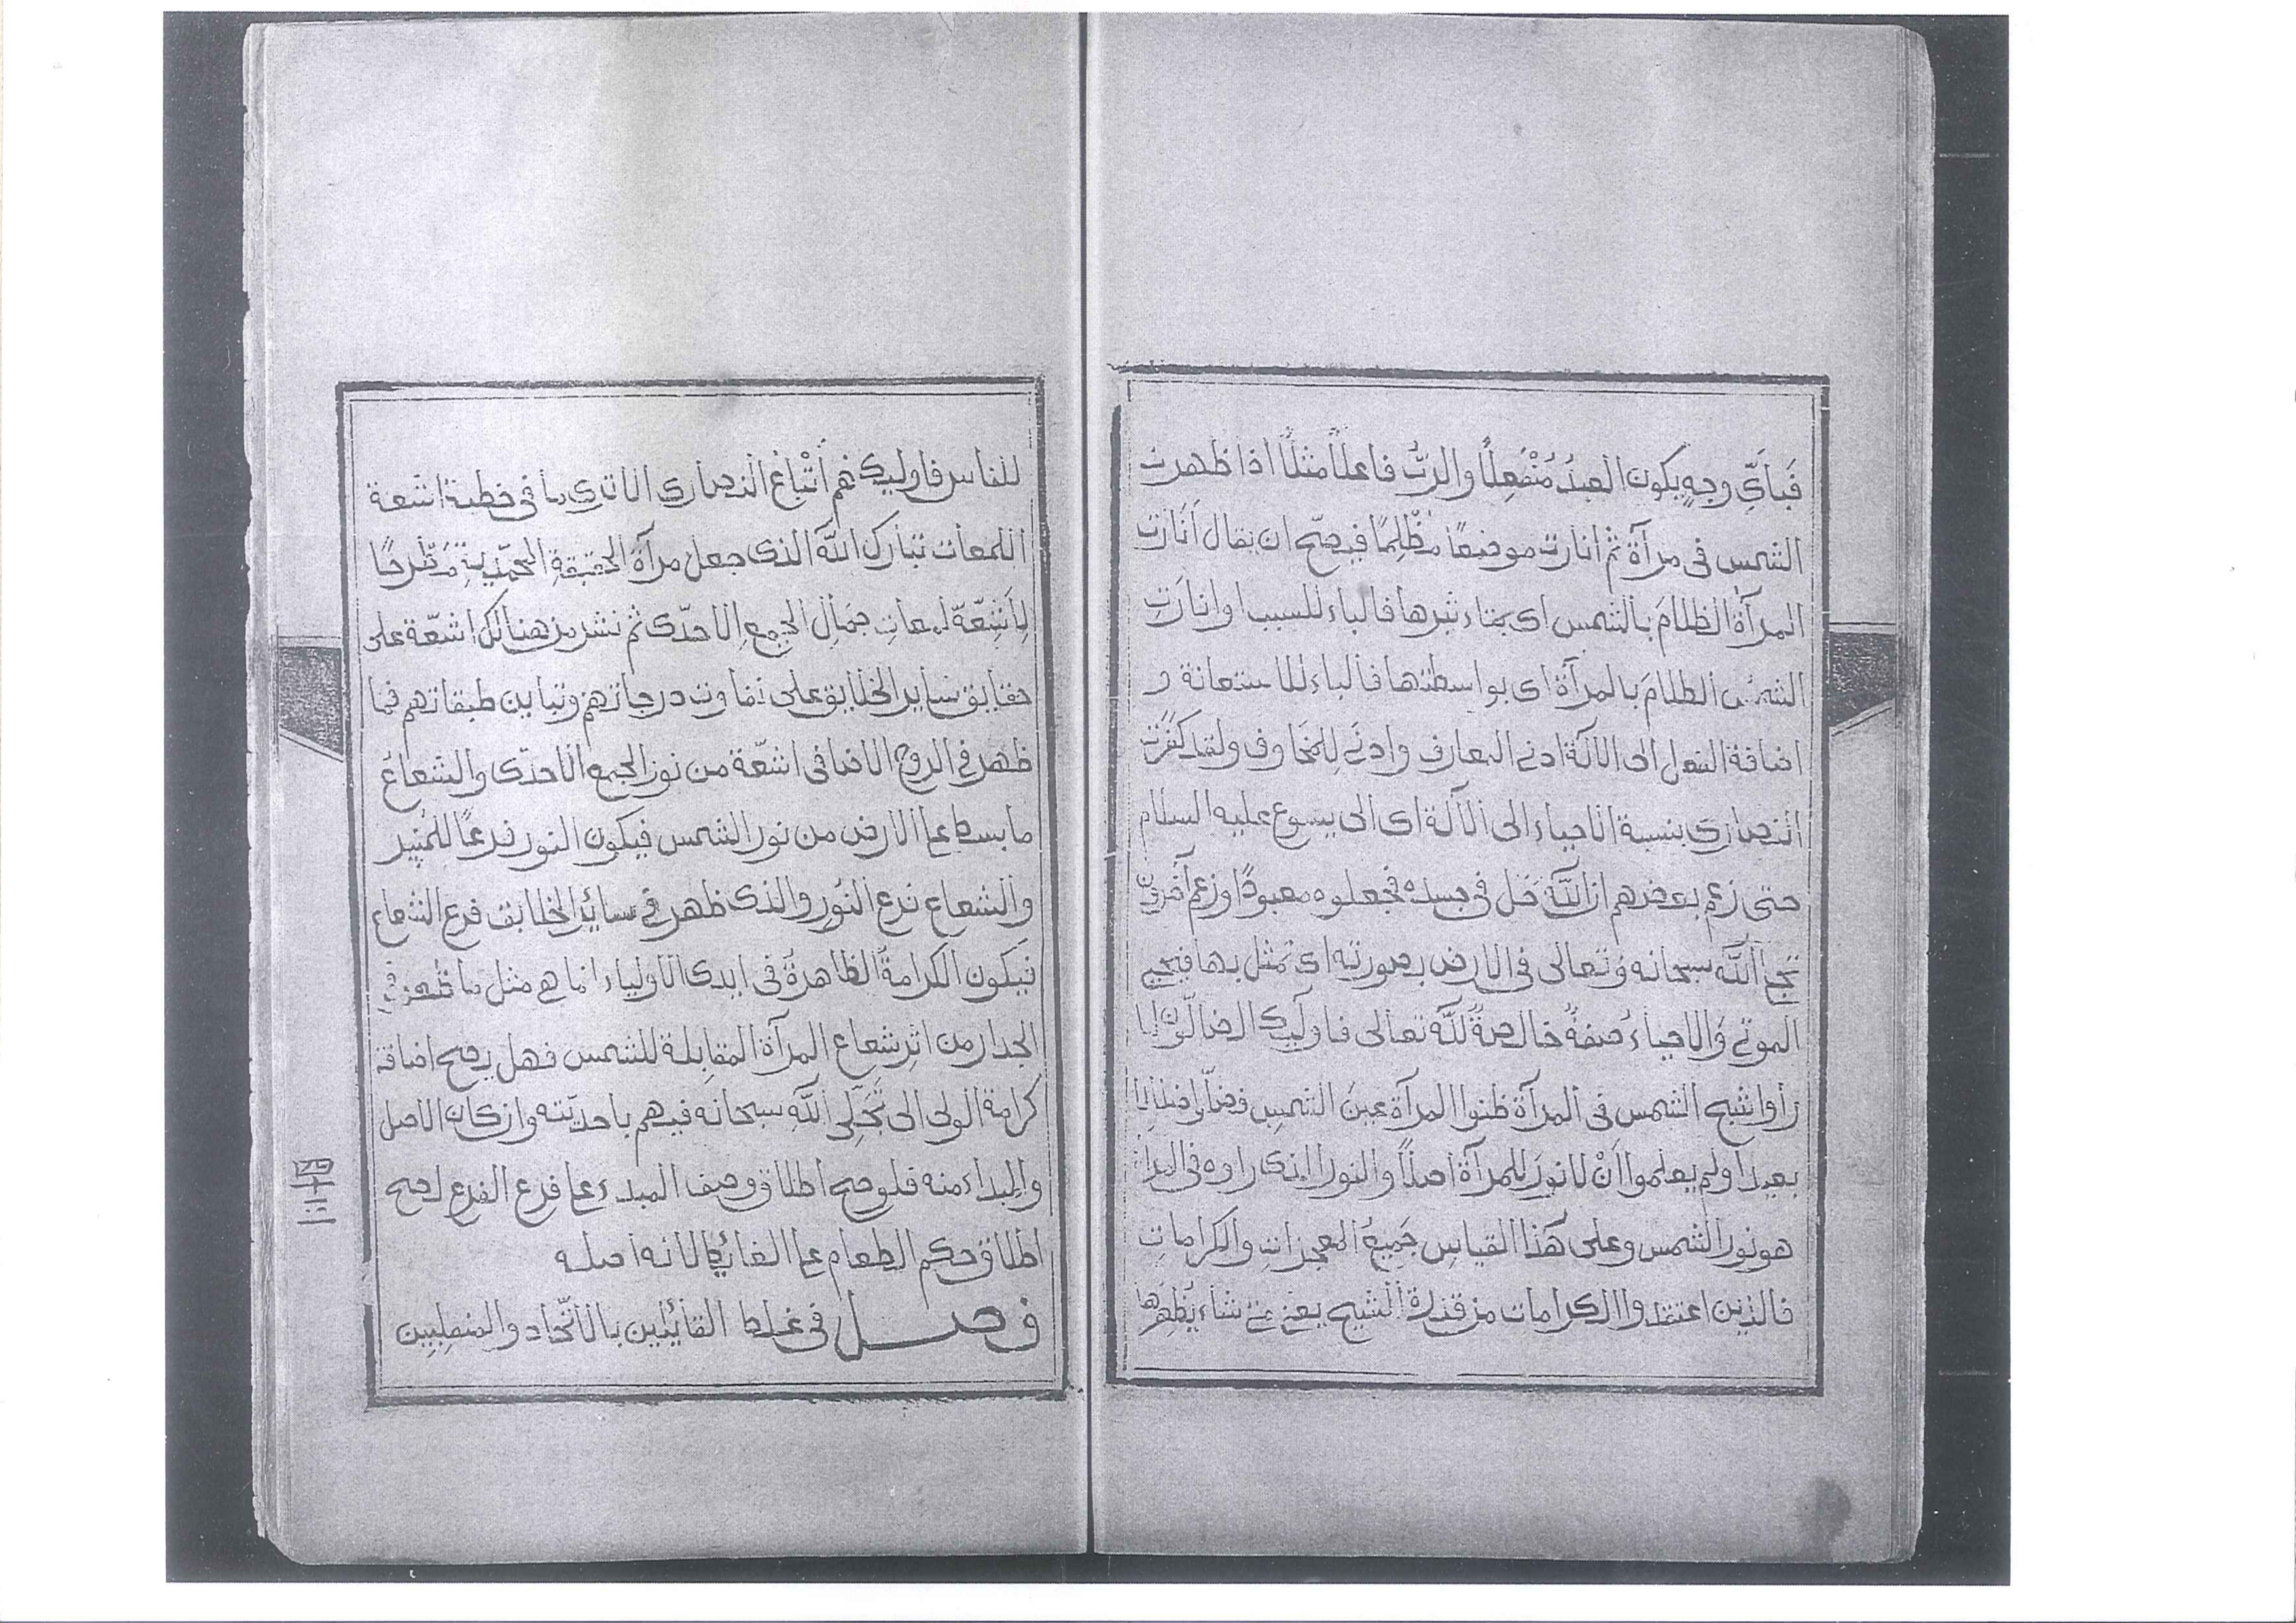 فَبِأَيِّ وجهٍ يكون العبدُ مُنْفَعِلًا والربُّ فاعلًا مثلًا اذا ظهرت
الشمس فى مرآة ثم أنارت موضعًا مُظْلِمًا فيصحّ ان يقال أَنَارَت
المرآةُ الظلامَ بالشمس اى بتاءثيرها فالباء للسبب او انارَتِ
الشمسُ الظلامَ بالمرآة اى بواسطتها فالباء للاستعانة و
اضافة الفعل الى الآلة ادنى المعارف وادنى للمخاوف ولقد كَفَرَت
النصارى بنسبة الاحياء الى الآلة اى الى يسوع عليه السلام
حتى زعم بعضهم ان اللّه حَل فى جسده فجعلوه معبودًا وزعم آخرون
تجلى اللّه سبحانه وتعالى فى الارض بصورته اى تمثل بها فيحيى
الموتى والاحياء صفةٌ خالصةٌ للّه تعالى فاوليك الضالّون لما
رأوا شبح الشمس فى المرآة ظنوا المرآة عينَ الشمسِ فضلّوا ضلالا
بعيدا ولم يعلموا اَنْ لا نورَ للمرآة اصلًا والنور الذى راوه فى المرآة
هو نور الشمس وعلى هَذا القياسِ جَمِيعُ المعجزاتِ والكراماتِ
فالذين اعتقدوا الكرامات من قدرة الشيخ يعنى متى شاء يُظهِرها
للناس فاوليك هم أَتْبَاعُ النصارى الا ترى ما فى خطبة اشعة
اللمعات تبارك اللّه الذى جعل مرآة الحقيقةِ المحمّديةِ مَطْرحًا
لِأَشِعّة لمعاتِ جمَالِ الجمعِ الاحدّى ثم نشر من هنالك اشعّة على
حقايق ساير الخلايق على تفاوت درجاتهم وتباين طبقاتهم فما
ظهر فى الروح الاضافى اشعّة من نور الجمع الاحدّى والشعاعُ
ما بسط على الارض من نور الشمس فيكون النور فرعًا للمُنِير
والشعاع فرع النُور والذى ظهر فى سائر الخلايق فرع الشعاع
فيكون الكرامةُ الظاهرةُ فى ايدى الاولياء انما هى مثل ما ظهر فى
الجدار من اثر شعاع المرآة المقابلة للشمس فهل يصح اضافة
كرامة الولى الى تَجَلِّى اللّه سبحانه فيهم باحديّته وان كان الاصل
والمبداء منه فلو صح اطلاق وصف المبدء على فرع الفرع لصح
اطلاق حكم الطعام على الغائط لانه اصله
فصل فى غلط القائلين بالاتّحاد والمنصلبين